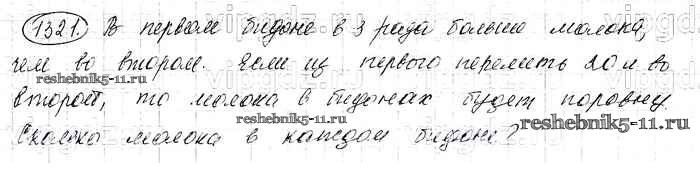 1321. В первом бидоне в 3 раза больше молока,
чем во втором. Если из первого перелить 20 л во
второй, то молока в бидонах будет поровну.
Сколько молока в каждом бидоне?
reshebnik5-11.ru
reshebnik5-11.ru
reshebnik5-11.ru